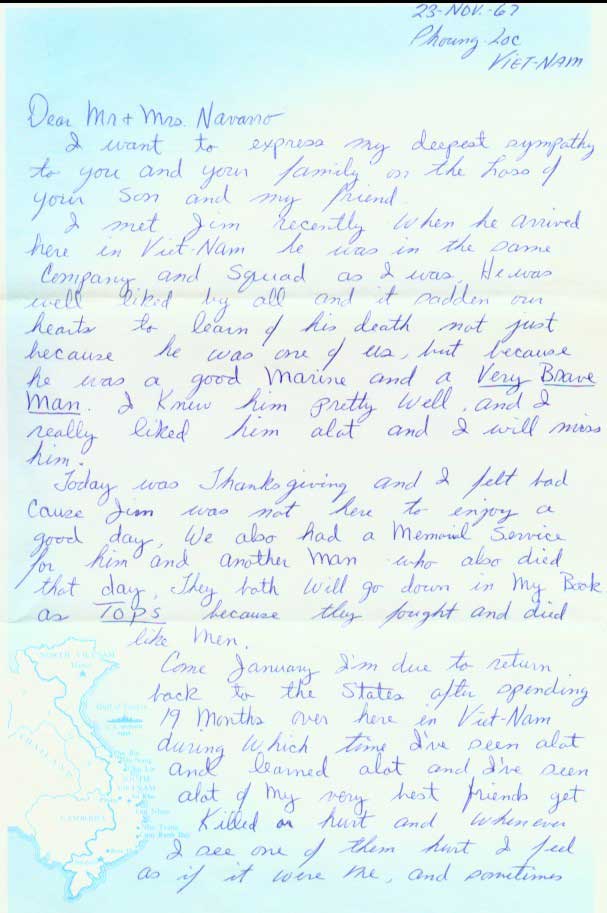 23-NOV.-67
Phoung-Loc
VIET-NAM
Dear Mr + Mrs. Navarro
I want to express my deepest sympathy
to you and your family on the Loss of
your Son and my friend.
I met Jim recently when he arrived
here in Viet-Nam he was in the same
Company and Squad as I was, He was
well liked by all and it sadden our
hearts to learn of his death not just
because he was one of us, but because
he was a good Marine and a Very Brave
Man. I Knew him pretty well, and I
really liked him alot and I will miss
him.
Today was Thanksgiving and I felt bad
Cause Jim was not here to enjoy a
good day, We also had a Memorial Service
for him and another Man who also died
that day, They both will go down in My Book
as TOPS because they fought and died
like Men.
Come January I'm due to return
back to the States after spending
19 Months over here in Viet-Nam
during which time I've seen alot
and learned alot and I've seen
alot of My very best friends get
Killed or hurt and whenever
I see one of them hurt I feel
as if it were me, and sometimes
NORTH VIETNAM
Hanoi
Gulf of Tonkin
THAILAND
SOUTH
VIETNAM
CAMBODIA
Nha Trang